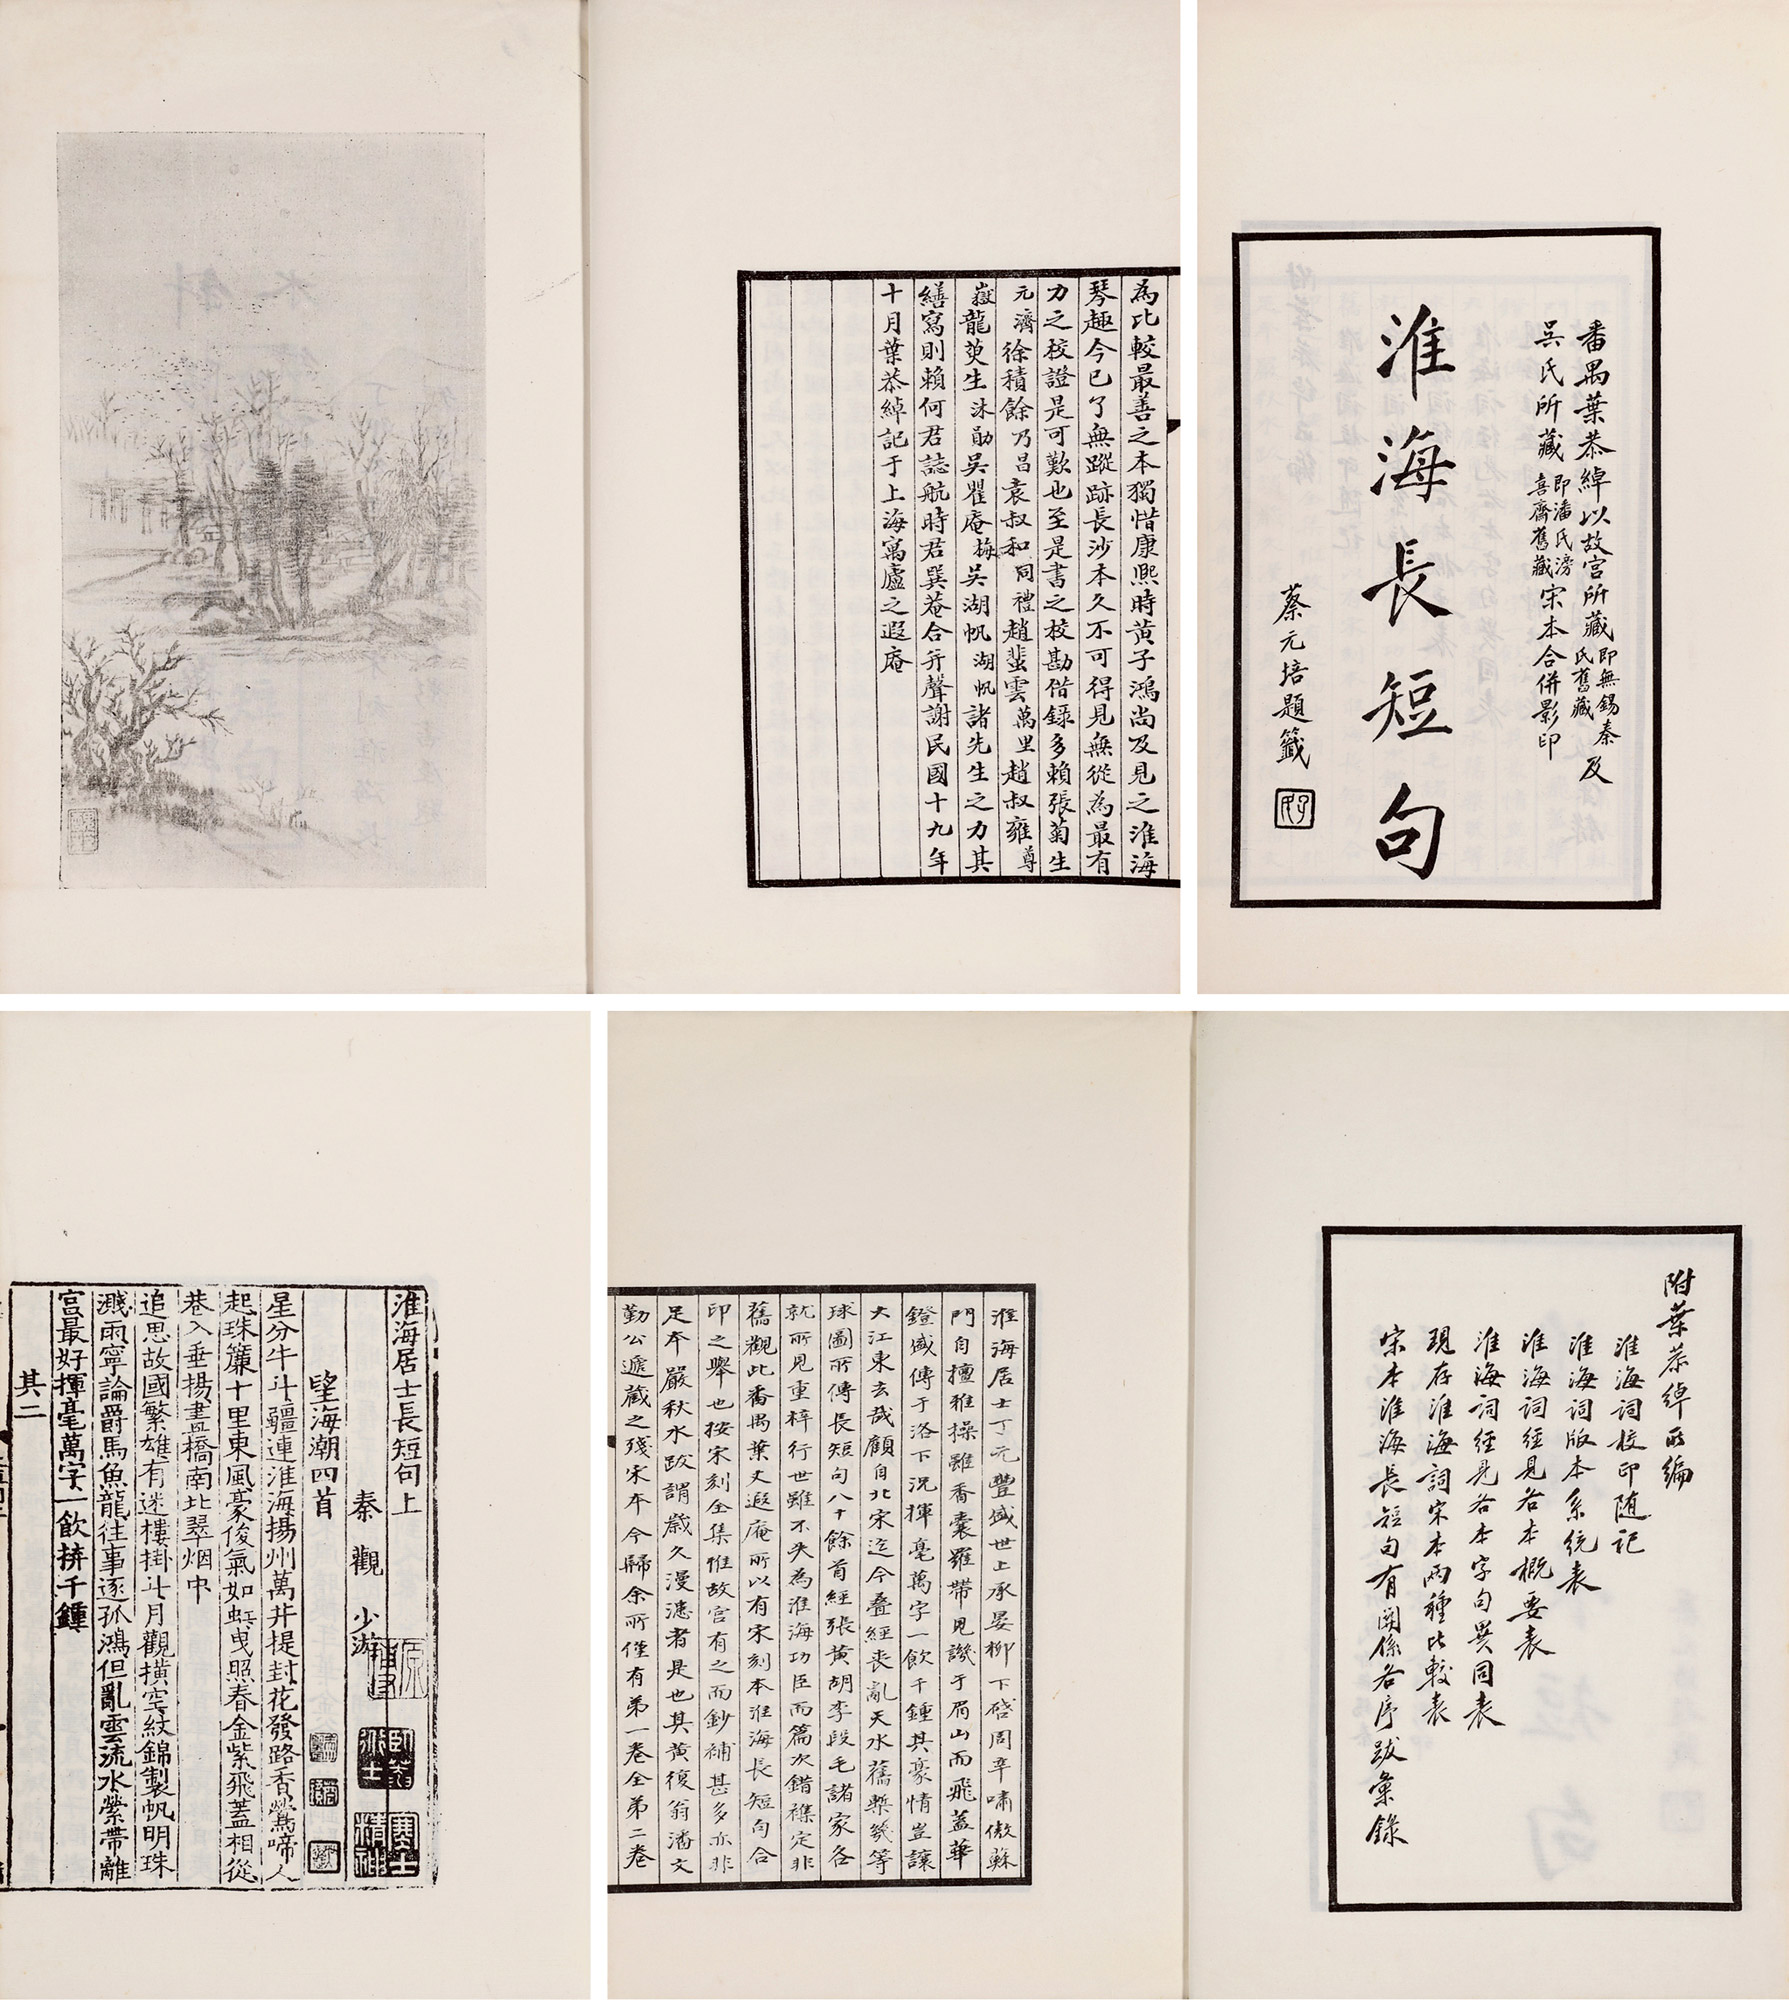 番禺葉恭綽以故宮所藏即無錫秦氏舊藏及
吳氏所藏即潘氏滂喜齋舊藏宋本合併影印
淮海長短句
蔡元培題籤
為比較最善之本獨惜康熙時黃子鴻尚及見之淮海
琴趣今已了無蹤跡長沙本久不可得見無從為最有
力之校證是可歎也至是書之校勘借錄多賴張菊生
元濟徐積餘乃昌袁叔和同禮趙蜚雲萬里趙叔雍尊
嶽龍萸生沐勛吳瞿庵梅吳湖帆湖帆諸先生之力其
繕寫則賴何君誌航時君巽菴合并聲謝民國十九年
十月葉恭綽記于上海寓廬之遐庵
附葉恭綽所編
淮海詞校印随記
淮海詞版本系統表
淮海詞經見各本概要表
淮海詞經見各本字句異同表
現存淮海詞宋本兩種比較表
宋本淮海長短句有関係各序跋彙錄
淮海居士丁元豐盛世上承晏柳下啓周辛嘯傲蘇
門自擅雅操雖香囊羅帶見譏于眉山而飛蓋華
鐙盛傳于洛下況揮毫萬字一飲千鍾其豪情豈讓
大江東去哉顧自北宋迄今叠經喪亂天水舊槧幾等
球圖所傳長短句八十餘首經張黃胡李段毛諸家各
就所見重梓行世雖不失為淮海功臣而篇次錯襍定非
舊觀此番禺葉丈遐庵所以有宋刻本淮海長短句合
印之舉也按宋刻全集惟故宮有之而鈔補甚多亦非
足本嚴秋水跋謂歲久漫漶者是也其黃復翁潘文
勤公遞藏之殘宋本今歸余所僅有弟一卷全弟二卷
淮海居士長短句上
秦觀少游
望海潮四首
星分牛斗疆連淮海揚州萬井提封花發路香鶯啼人
起珠簾十里東風豪俊氣如虹曳照春金紫飛蓋相從
巷入垂楊畫橋南北翠烟中
追思故國繁雄有迷樓掛斗月觀橫空紋錦製帆明珠
濺雨寧論爵馬魚龍往事逐孤鴻但亂雲流水縈帶離
宮最好揮毫萬字一飲拚千鍾
其二